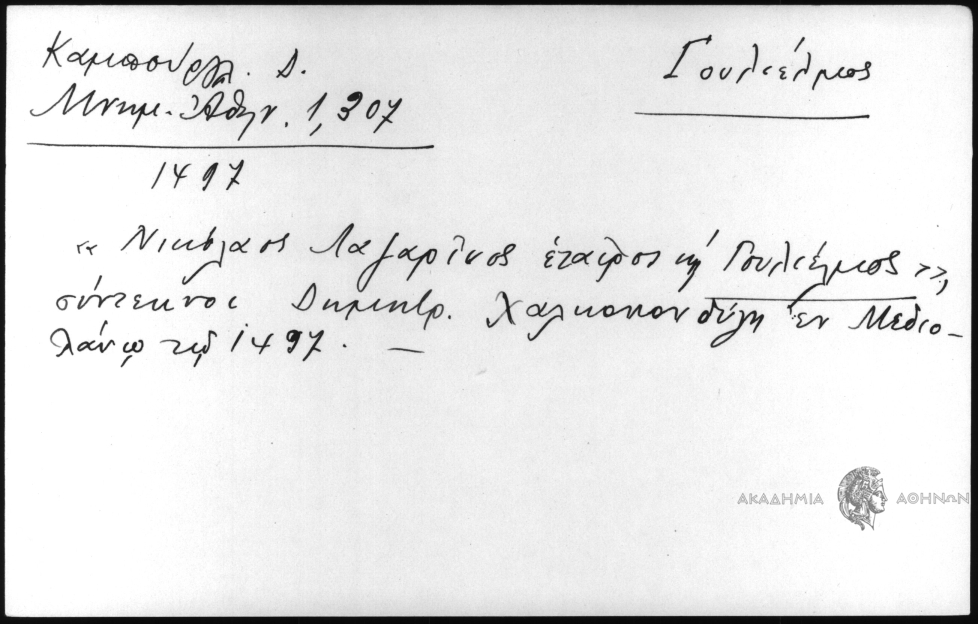 Καμπούρογλ. Δ.
Μνημ. Ἀθην. 1, 307
Γουλιέλμος
1497
« Νικόλαος Λαζαρῖνος ἑταῖρος κὴ Γουλιέλμος »,
σύντεκνοι Δημητρ. Χαλκοκονδύλη ἐν Μεδιο-
λάνῳ τῷ 1497. —
ΑΚΑΔΗΜΙΑ ΑΘΗΝΩΝ